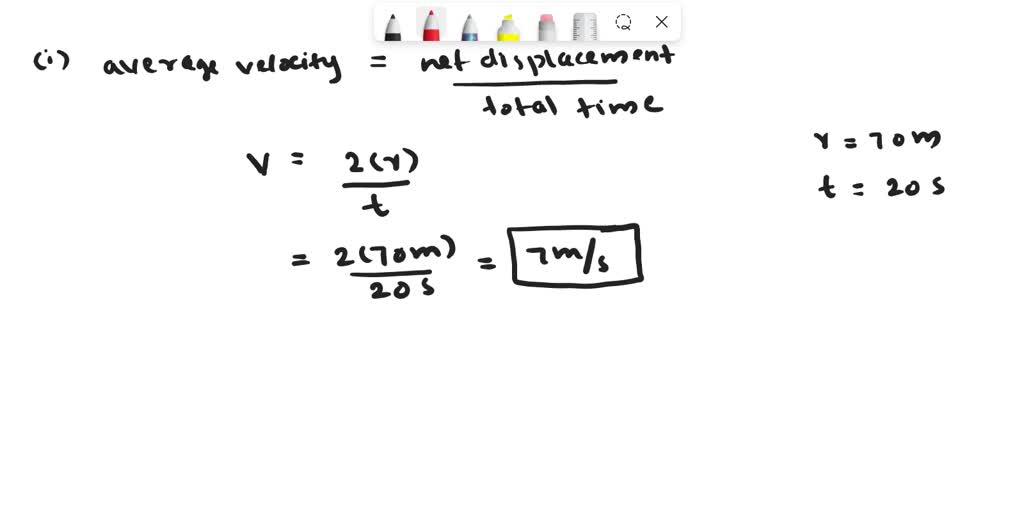 (i) average velocity = net displacement
total time
r = 70m
t = 20 s
V = 2(r)
t
= 2(70m) = 7m/s
20 s